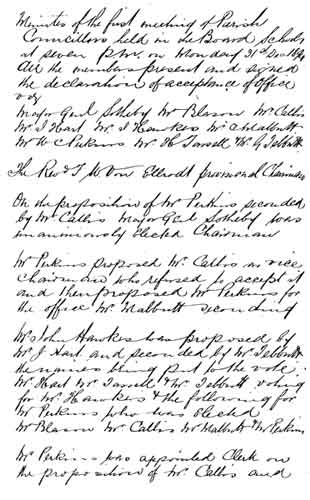 Minutes of the first meeting of Parish
Councillors held in the Board School
at seven P.M. on Monday 31st Dec 1894
All the members present and signed
the declaration of acceptance of Office
viz
Major Genl Sotheby Mr Blason Mr Callis
Mr J Hart Mr J Hawkes Mr Malbutt
Mr W C Perkins Mr H Tarrell & Mr G Tebbitt
The Rev J M Von Ellrodt provisional Chairman
On the proposition of Mr Perkins seconded
by Mr Callis Major Gel Sotheby was
unanimously elected Chairman
Mr Perkins proposed Mr Callis as vice
Chairman who refused to accept it
and then proposed Mr Perkins for
the office Mr Malbutt seconding
Mr John Hawkes was proposed by
Mr J Hart and seconded by Mr Tebbutt
the names being put to the vote
Mr Hart Mr Tarrell & Mr Tebbutt voting
for Mr Hawkes & the following for
Mr Perkins who was elected
Mr Blason Mr Callis Mr Malbutt & Mr Perkins
Mr Perkins was appointed Clerk on
the proposition of Mr Callis and